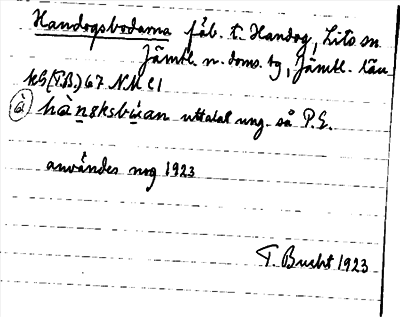 Handogsbodarna fäb. t. Handog, Lits sn
Jämtl. n. doms. tg, Jämtl. län
kS(T.B.) 67 N.M. c1
(à) hanɔksbúan uttalat ung. så P.E.
användes nog 1923
T. Bucht 1923